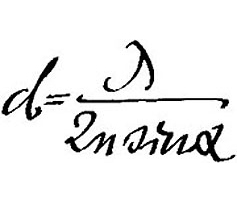 d = λ / 2n sin α